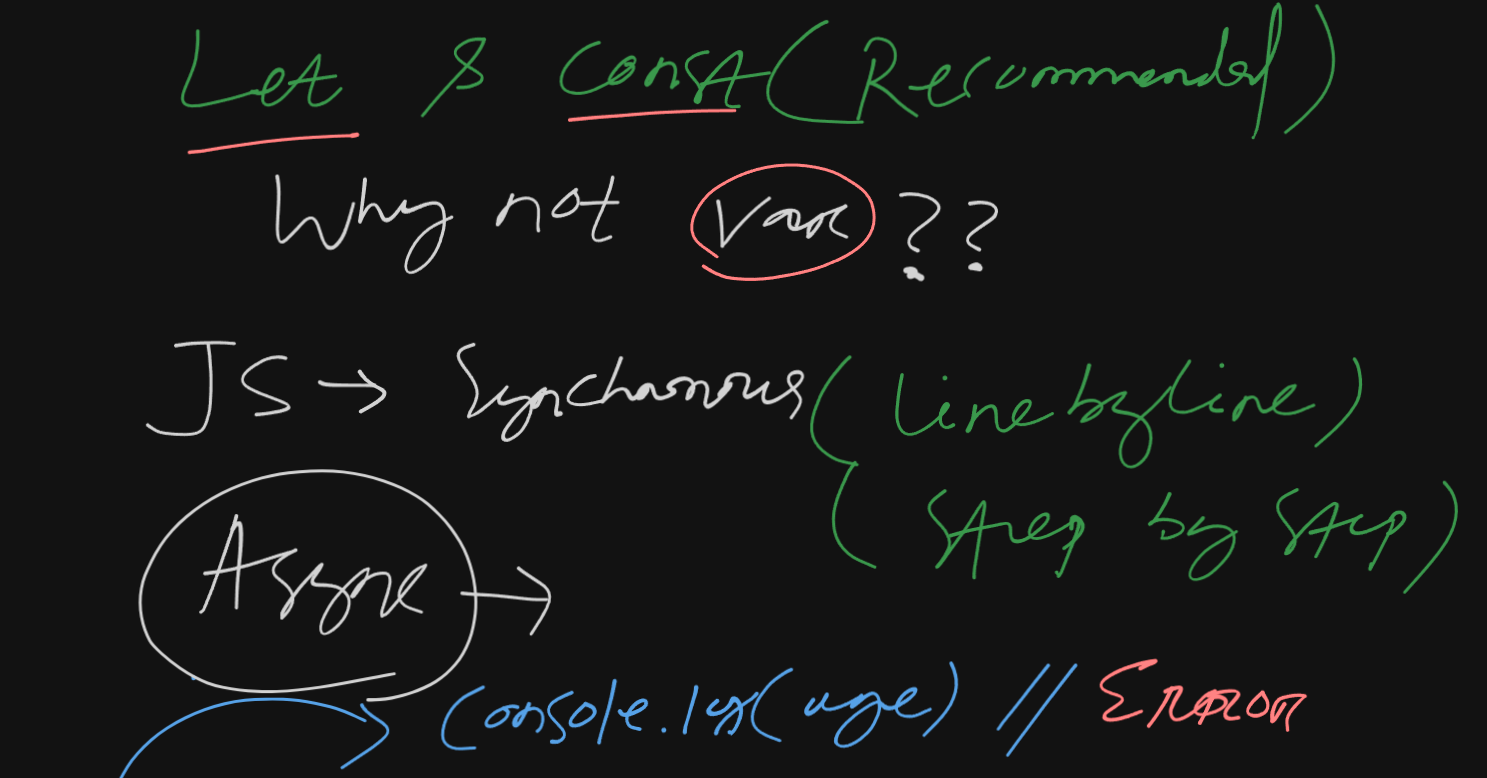 Let & Const (Recommended)
Why not Var ??
JS → Synchronous (Line by Line)
(Step by Step)
Async →
Console.log(age) // Error